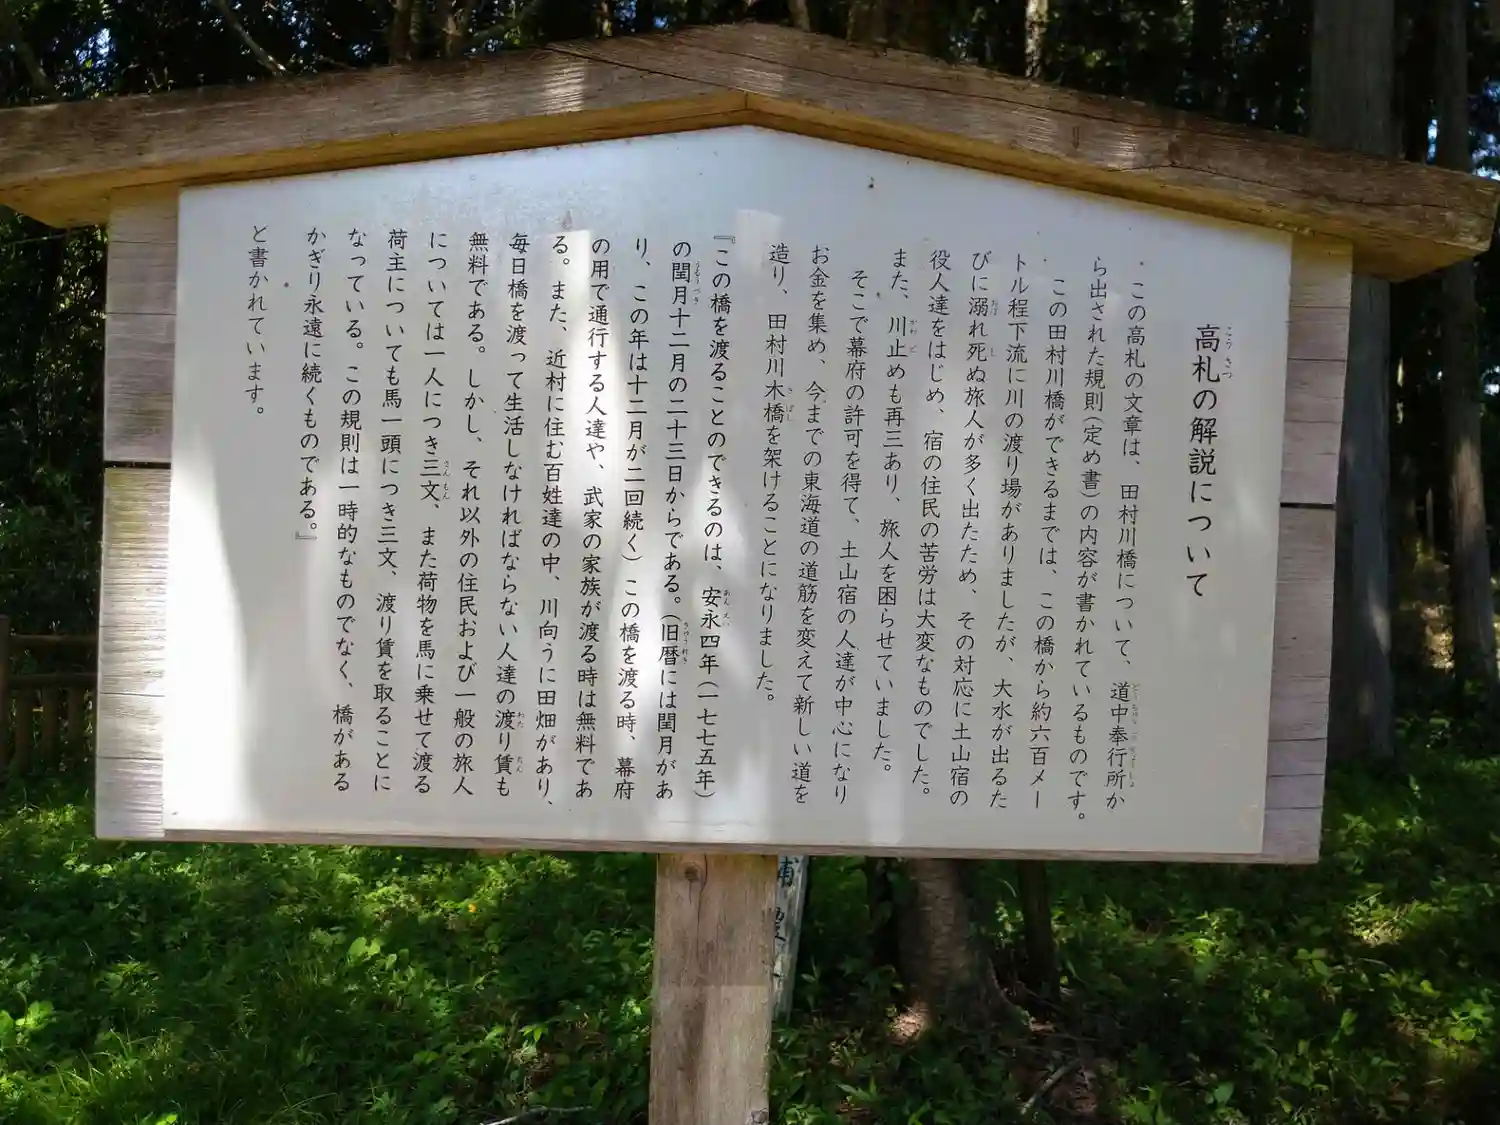 高札の解説について
この高札の文章は、田村川橋について、道中奉行所か
ら出された規則(定め書)の内容が書かれているものです。
この田村川橋ができるまでは、この橋から約六百メー
トル程下流に川の渡り場がありましたが、大水が出るた
びに溺れ死ぬ旅人が多く出たため、その対応に土山宿の
役人達をはじめ、宿の住民の苦労は大変なものでした。
また、川止めも再三あり、旅人を困らせていました。
そこで幕府の許可を得て、土山宿の人達が中心になり
お金を集め、今までの東海道の道筋を変えて新しい道を
造り、田村川木橋を架けることになりました。
『この橋を渡ることのできるのは、安永四年(一七七五年)
の閏月十二月の二十三日からである。(旧暦には閏月があ
り、この年は十二月が二回続く)この橋を渡る時、幕府
の用で通行する人達や、武家の家族が渡る時は無料であ
る。また、近村に住む百姓達の中、川向うに田畑があり、
毎日橋を渡って生活しなければならない人達の渡り賃も
無料である。しかし、それ以外の住民および一般の旅人
については一人につき三文、また荷物を馬に乗せて渡る
荷主についても馬一頭につき三文、渡り賃を取ることに
なっている。この規則は一時的なものでなく、橋がある
かぎり永遠に続くものである。』
と書かれています。